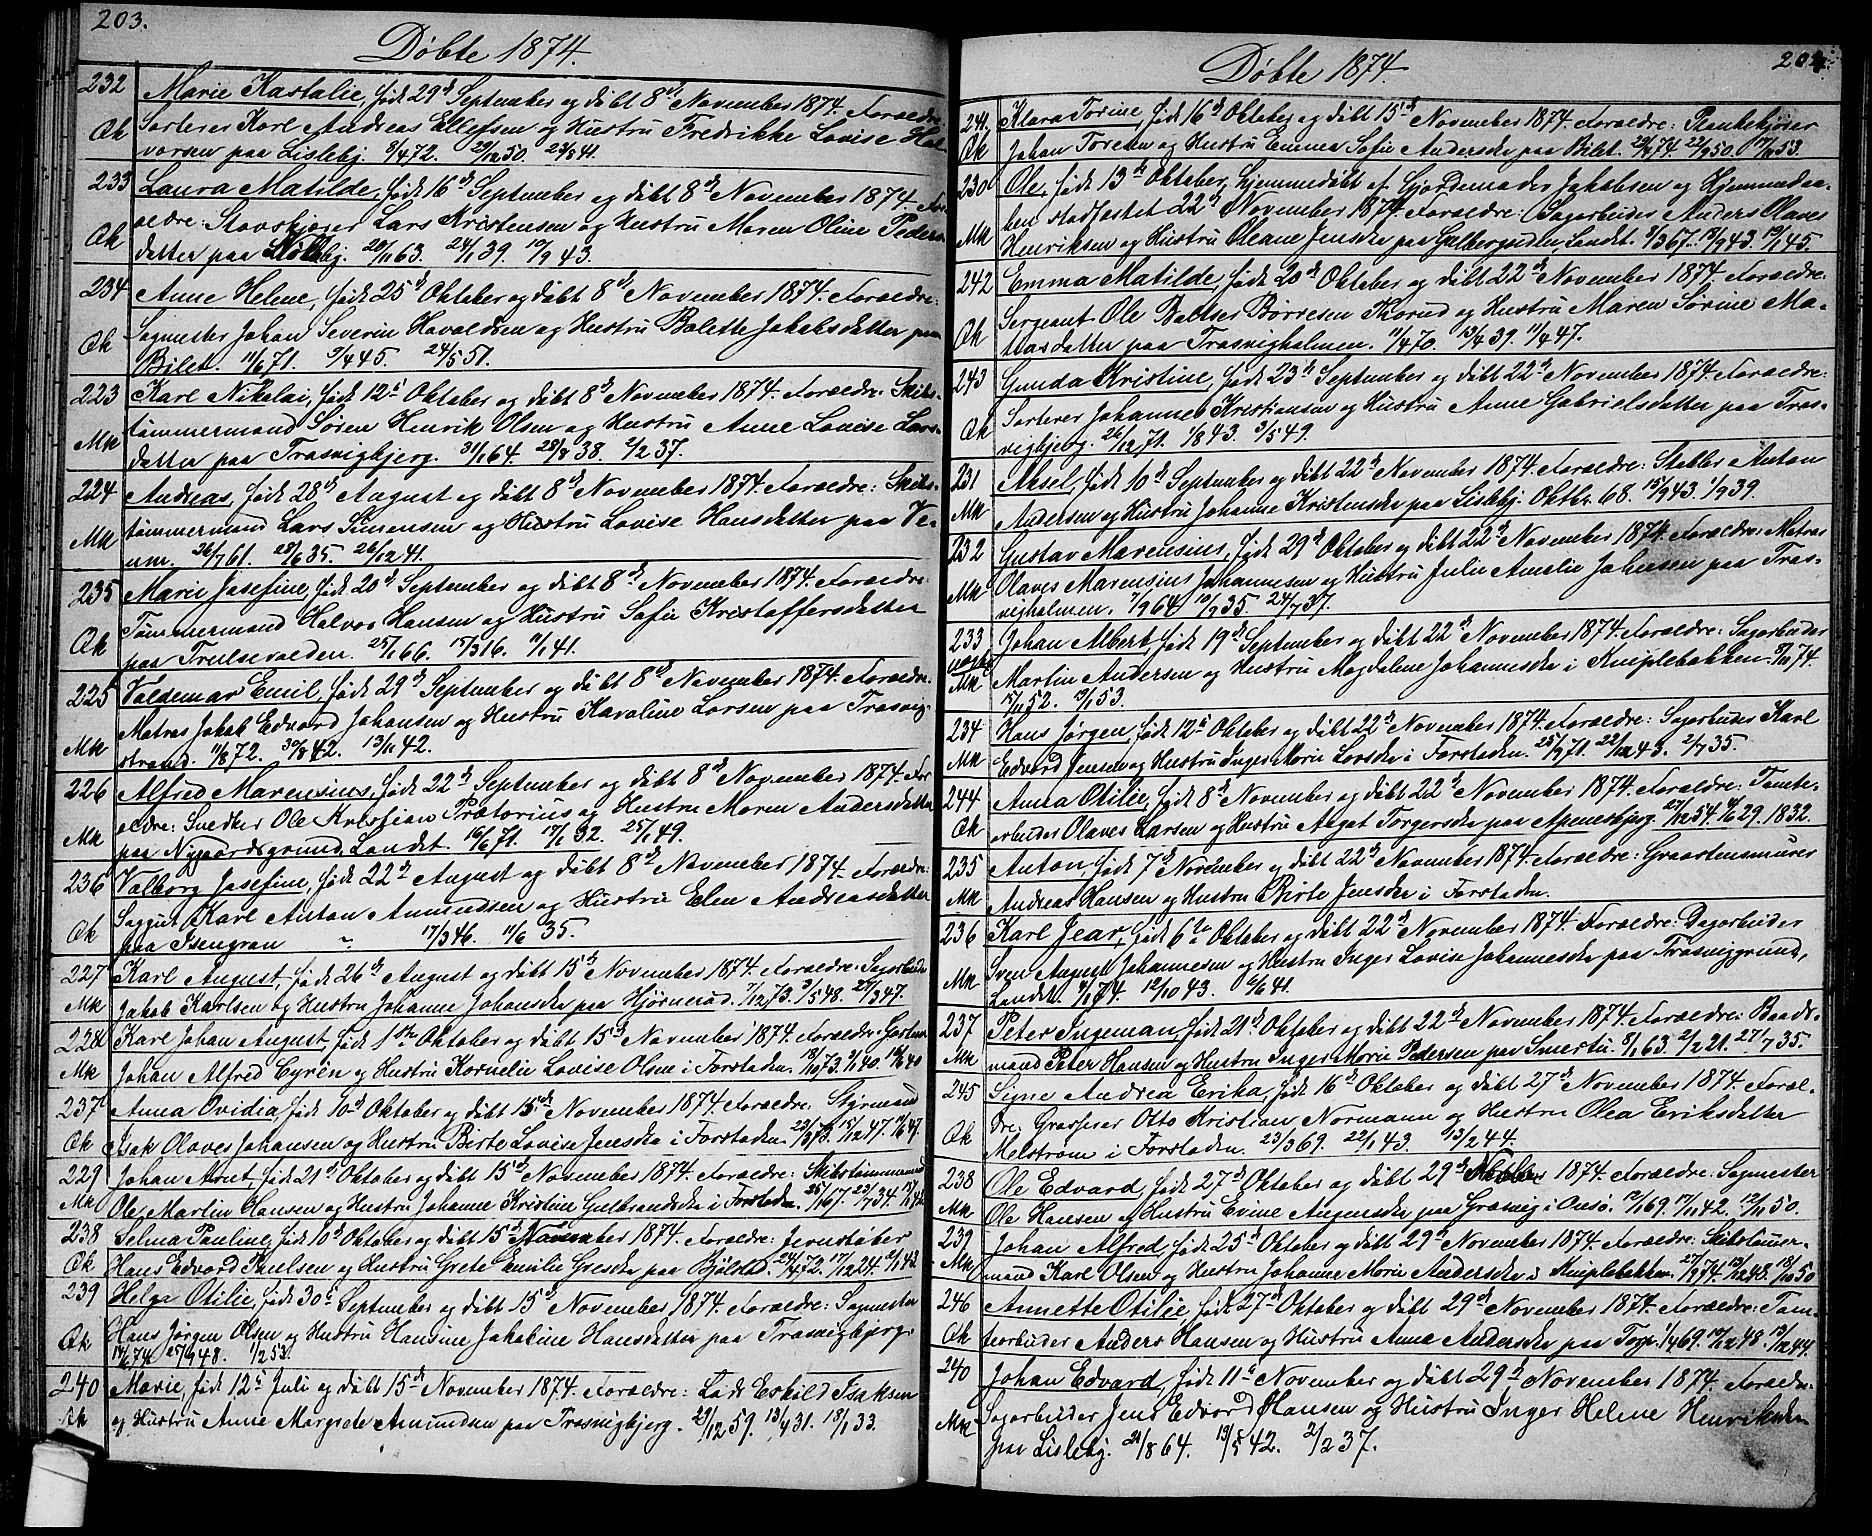 203.
Døbte 1874.
232 Marie Kastalie, født 29de September og døbt 8de November 1874. Foræeldre:
Sorterer Karl Andreas Ellefsen og Hustru Fredrikke Lovise Hal-
Qk vorsen paa Lisleby. 8/4 72. 29/12 50. 23/8 41.
233 Laura Matilde, født 16de September og døbt 8de November 1874. For-
ældre: Stavskjører Lars Kristensen og Hustru Maren Oline Peders-
Qk datter paa Lisleby. 20/11 63. 24/1 39. 10/9 43.
234 Anne Helene, født 25de Oktober og døbt 8de November 1874. Forældre:
Sagmester Johan Severin Havaldsen og Hustru Bolette Jakobsdatter paa
Qk Bilet. 11/6 71. 9/4 45. 24/5 51.
223 Karl Nikolai, født 12te Oktober og døbt 8de November 1874. Forældre: Skibs-
tømmermand Søren Henrik Olsen og Hustru Anne Lovise Lars-
Mk datter paa Trosvigbjerg. 31/1 64. 28/8 38. 2/2 37.
224 Andreas, født 28de August og døbt 8de November 1874. Forældre: Skibs-
tømmermand Lars Simensen og Hustru Lovise Hansdatter paa Ve-
Mk um. 26/7 61. 28/6 35. 26/12 41.
235 Marie Josefine, født 20de September og døbt 8de November 1874. Forældre:
Tømmermand Halvor Hansen og Hustru Sofie Kristoffersdatter
Qk paa Trulsevolden. 25/1 66. 17/3 16. 11/1 41.
225 Valdemar Emil, født 29de September og døbt 8de November 1874. Forældre:
Matros Jakob Edvard Johansen og Hustru Karoline Larsen paa Trosvig-
Mk strand. 11/8 72. 30/8 42. 13/11 42.
226 Alfred Marensius, født 22de September og døbt 8de November 1874. For-
ældre: Snedker Ole Kristian Prætorius og Hustru Maren Andersdatter
Mk paa Nygaardsgrund, Landet. 16/6 71. 17/1 32. 25/1 49.
236 Valborg Josefine, født 22de August og døbt 8de November 1874. Forældre:
Saggut Karl Anton Amundsen og Hustru Elen Andreasdatter
Qk paa Isengran ~ 17/3 46. 11/6 35.
227 Karl August, født 26de August og døbt 15de November 1874. Forældre: Sagarbeider
Mk Jakob Karlsen og Hustru Johanne Johansdr paa Hjørnerød. 7/12 73. 3/5 48. 27/3 47.
228 Karl Johan August, født 1ste Oktober og døbt 15de November 1874. Forældre: Gartner
Mk Johan Alfred Cyren og Hustru Kornelie Lovise Olsen i Forstaden.
237 Anna Ovidia, født 10de Oktober og døbt 15de November 1874. Forældre: Styrmand
Qk Isak Olaves Johansen og Hustru Birte Lovise Jensdr i Forstaden.
229 Johan Arnt, født 21de Oktober og døbt 15de November 1874. Forældre: Skibstømmermand
Mk Ole Martin Hansen og Hustru Johanne Kristine Gulbrandsdr i Forstaden.
238 Selma Pauline, født 10de Oktober og døbt 15de November 1874. Forældre: Jernstøber
Qk Hans Edvard Paulsen og Hustru Grete Emilie Gresdr paa Bjølstad. 24/4 72. 17/12 24.
239 Helga Otilie, født 30te September og døbt 15de November 1874. Forældre: Sagmester
Qk Hans Jørgen Olsen og Hustru Hansine Jakobine Hansdatter paa Trosvigbjerg.
14/6 74. 25/9 48. 1/2 53.
240 Marie, født 12te Juli og døbt 15de November 1874. Forældre: Lods Eskild Isaksen
Qk og Hustru Anne Margrete Amundsen paa Trosvigbjerg. 29/12 59. 13/4 31. 18/1 33.
204.
Døbte 1874.
241. Klara Torine, født 16de Oktober og døbt 15de November 1874. Forældre: Plankekjører
Qk Johan Toresen og Hustru Emma Sofie Andersdr paa Bilet.
230 Ole, født 13de Oktober, hjemmedøbt af Gjordemoder Jakobsen og Hjemmedaa-
ben stadfæstet 22de November 1874. Forældre: Sagarbeider Anders Olaves
Mk Henriksen og Hustru Oleane Jensdr paa Gulbergsiden, Landet. 8/3 67. 18/9 43. 19/1 45.
242 Emma Matilde, født 20de Oktober og døbt 22de November 1874. Forældre:
Sergeant Ole Baltser Børresen Thorud og Hustru Maren Sørine Ma-
Qk tiasdatter paa Trosvigholmen. 11/4 70. 13/4 39. 11/8 47.
243 Gunda Kristine, født 23de September og døbt 22de November 1874. Forældre:
Sorterer Johannes Kristiansen og Hustru Anne Gabrielsdatter paa Tros-
Qk vigbjerg. 26/12 71. 1/8 43. 3/5 49.
231 Aksel, født 10de September og døbt 22de November 1874. Forældre: Stabler Anton
Mk Andersen og Hustru Johanne Kristensdr paa Lisleby. Oktbr. 68. 15/9 43. 1/9 39.
232 Gustav Marensius, født 29de Oktober og døbt 22de November 1874. Forældre: Matros
Mk Olaves Marensius Johannesen og Hustru Julie Amalie Johnsen paa Tros-
vigholmen. 7/9 64. 10/7 35. 24/7 37.
233 Johan Albert, født 19de September og døbt 22de November 1874. Forældre: Sagarbeider
uægte Mk Martin Andersen og Hustru Magdalene Johannesdr i Kniplebakken.
15/11 52. 9/1 53.
234 Hans Jørgen, født 12te Oktober og døbt 22de November 1874. Forældre: Sagarbeider Karl
Mk Edvard Jensen og Hustru Inger Marie Larsdr i Forstaden. 25/9 71. 22/12 43. 2/7 35.
244 Anna Otilie, født 8de November og døbt 22de November 1874. Forældre: Tomte-
Qk arbeider Olaves Larsen og Hustru Aagot Torgersdr paa Apenesbjerg. 27/12 54. 4/6 29. 1832.
235 Anton, født 7de November og døbt 22de November 1874. Forældre: Graastensmurer
Mk Andreas Hansen og Hustru Birte Jensdr i Forstaden.
236 Karl Jear, født 6te Oktober og døbt 22de November 1874. Forældre: Dagarbeider
Mk Sven August Johannesen og Hustru Inger Lovise Johannesdr paa Trosviggrund,
Landet. 4/1 74. 12/10 43. 6/6 41.
237 Peter Ingeman, født 21de Oktober og døbt 22de November 1874. Forældre: Baads-
Mk mand Peter Hansen og Hustru Inger Marie Pedersen paa Smertu. 8/1 63. 2/2 21. 27/7 35.
245 Signe Andrea Erika, født 16de Oktober og døbt 27de November 1874. Foræl-
dre: Grosserer Otto Kristian Normann og Hustru Olea Eriksdatter
Qk Melstrøm i Forstaden. 23/3 69. 22/1 43. 13/2 44.
238 Ole Edvard, født 27de Oktober og døbt 29de November 1874. Forældre: Sagmester
Mk Ole Hansen og Hustru Evine Augensdr paa Græsvig i Onsø. 12/1 69. 17/11 42. 12/11 50.
239 Johan Alfred, født 25de Oktober og døbt 29de November 1874. Forældre: Skibstømmer-
Mk mand Karl Olsen og Hustru Johanne Marie Andersdr i Kniplebakken.
246 Annette Otilie, født 27de Oktober og døbt 29de November 1874. Forældre: Tom-
Qk tearbeider Anders Hansen og Hustru Anne Andersdr paa Torp. 1/4 69. 19/12 48. 19/12 44.
240 Johan Edvard, født 11te November og døbt 29de November 1874. Forældre:
Mk Sagarbeider Jens Edvard Hansen og Hustru Inger Helene Henriksdr
paa Lisleby. 21/8 64. 19/5 42. 2/2 37.